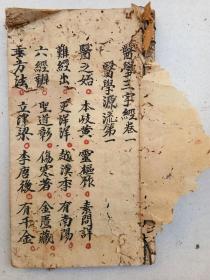 醫學三字經卷一
醫學源流第一
醫之始 本岐黃 靈樞作 素問詳
難經出 更洋洋 越漢季 有南陽
六經辨 聖道彰 傷寒著 金匱藏
垂方法 立津梁 李唐後 有千金